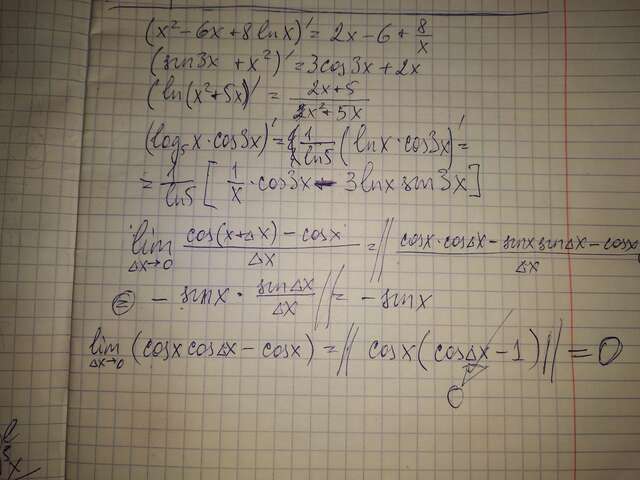 (x² - 6x + 8 ln x)' = 2x - 6 + 8/x
(sin 3x + x²)' = 3 cos 3x + 2x
(ln(x² + 5x))' = (2x + 5)/(x² + 5x)
(log₅ x · cos 3x)' = 1/ln 5 (ln x · cos 3x)' =
= 1/ln 5 [1/x · cos 3x - 3 ln x sin 3x]
lim Δx→0 (cos(x + Δx) - cos x)/Δx = // (cos x · cos Δx - sin x sin Δx - cos x)/Δx
⊜ - sin x · sin Δx/Δx // = - sin x
lim Δx→0 (cos x cos Δx - cos x) = // cos x (cos Δx - 1) // = 0
0